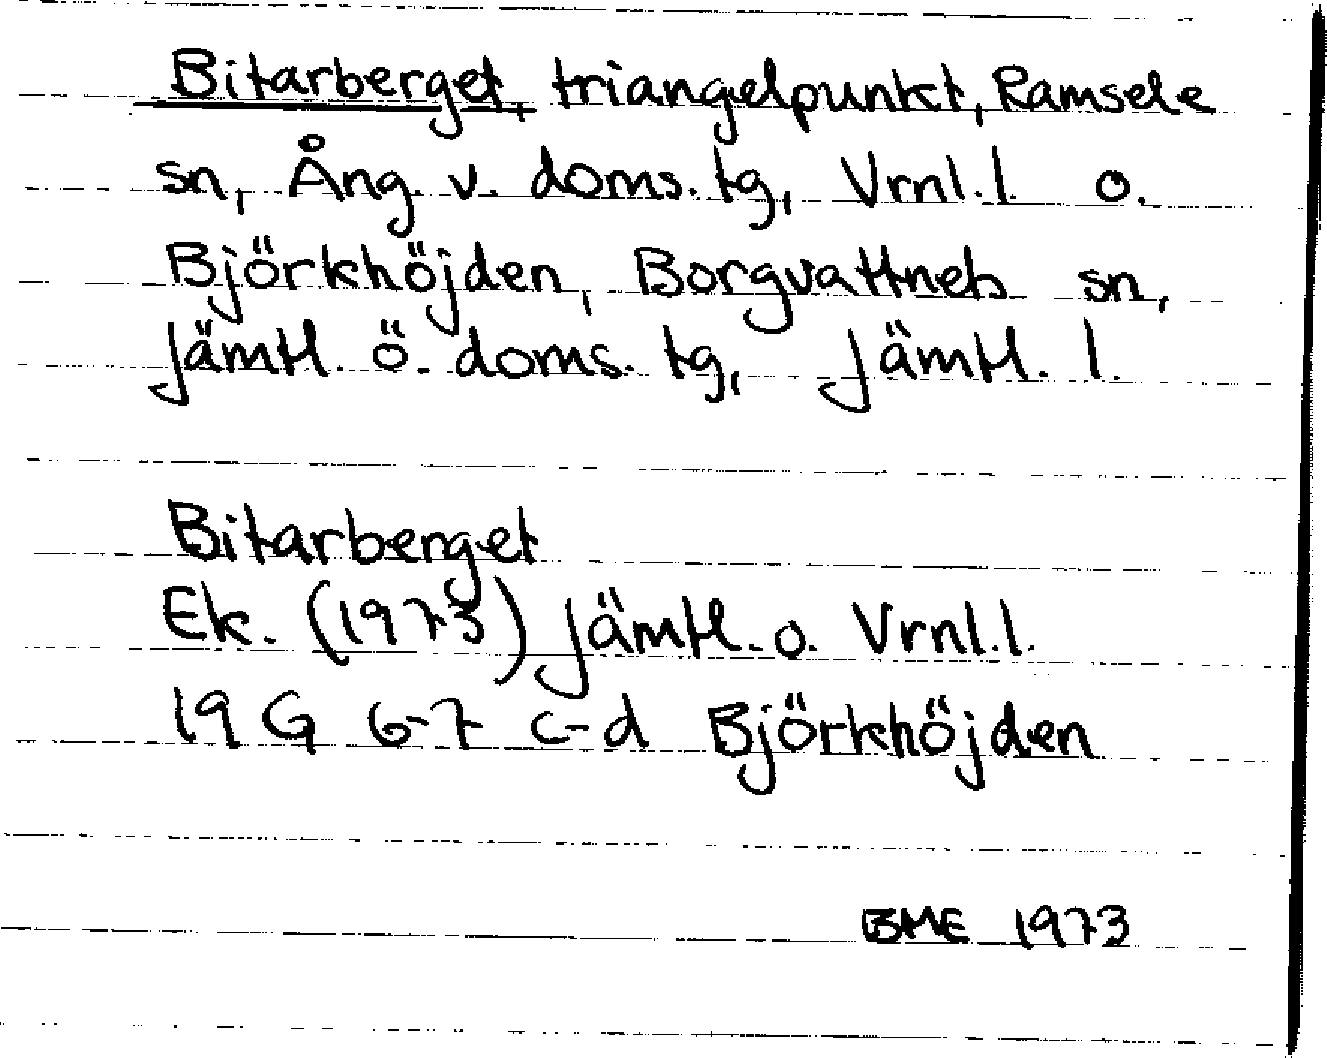 Bitarberget, triangelpunkt, Ramsele
sn, Ång. v. doms. tg, Vrnl. l. o.
Björkhöjden, Borgvattnets sn,
Jämtl. ö. doms. tg, Jämtl. l.
Bitarberget
Ek. (1973) Jämtl. o. Vrnl. l.
19 G 6-7 c-d Björkhöjden
BME 1973